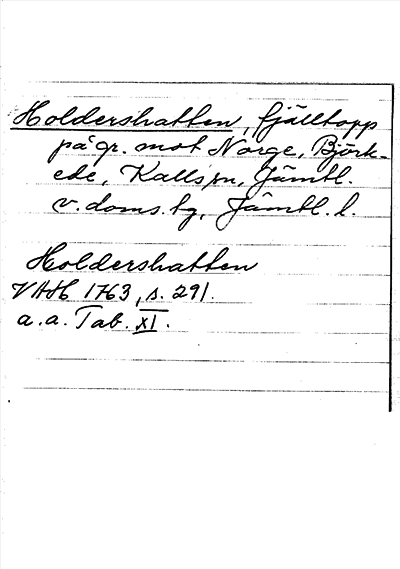 Holdershatten, fjälltopp
på gr. mot Norge, Björk-
ede, Kalls sn, Jämtl.
v. doms. tg, Jämtl. l.
Holdershatten
VAH 1763, s. 291.
a.a. Tab. XI.